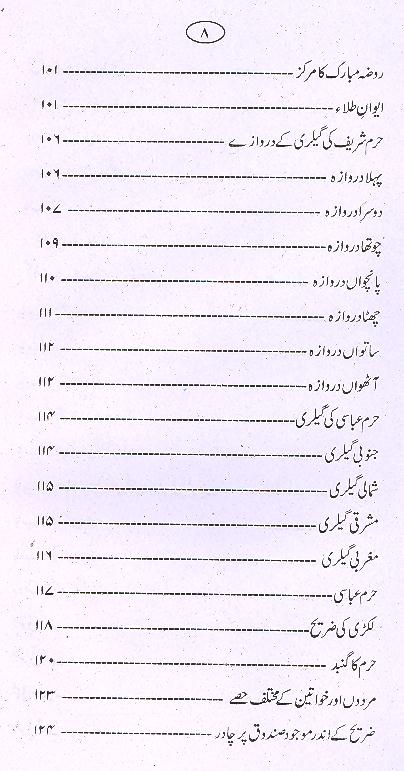 ۸
روضہ مبارک کا مرکز ------------------------------ ۱۰۱
ایوانِ طلاء ------------------------------ ۱۰۱
حرم شریف کی گیلری کے دروازے ------------------------------ ۱۰۶
پہلا دروازہ ------------------------------ ۱۰۶
دوسرا دروازہ ------------------------------ ۱۰۷
چوتھا دروازہ ------------------------------ ۱۰۹
پانچواں دروازہ ------------------------------ ۱۱۰
چھٹا دروازہ ------------------------------ ۱۱۱
ساتواں دروازہ ------------------------------ ۱۱۲
آٹھواں دروازہ ------------------------------ ۱۱۲
حرم عباسی کی گیلری ------------------------------ ۱۱۴
جنوبی گیلری ------------------------------ ۱۱۴
شمالی گیلری ------------------------------ ۱۱۵
مشرقی گیلری ------------------------------ ۱۱۵
مغربی گیلری ------------------------------ ۱۱۶
حرم عباسی ------------------------------ ۱۱۷
لکڑی کی ضریح ------------------------------ ۱۱۸
حرم کا گنبد ------------------------------ ۱۲۰
مردوں اور خواتین کے مختلف حصے ------------------------------ ۱۲۳
ضریح کے اندر موجود صندوق پر چادر ------------------------------ ۱۲۴